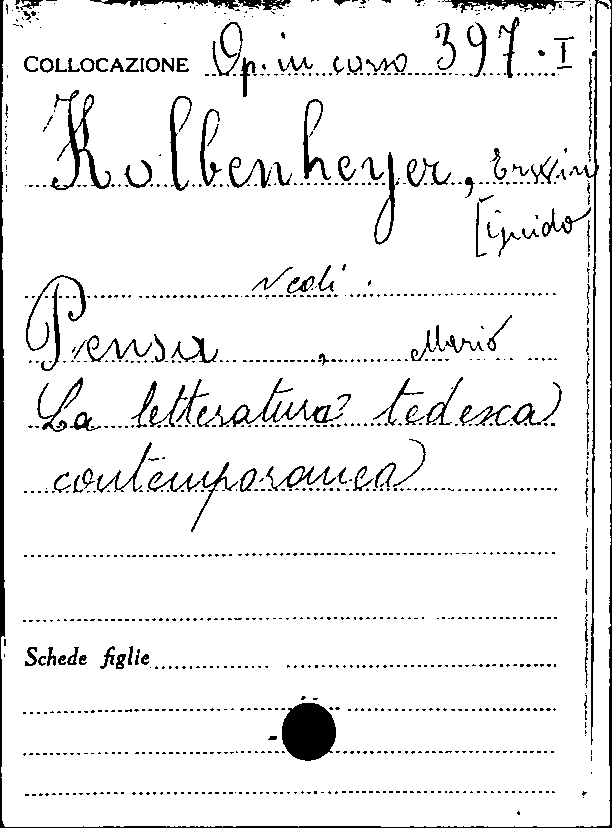 COLLOCAZIONE Op. in corso 397.I
Kolbenheyer, Erwin
[Guido
vedi.
Pensa, Mario
La letteratura tedesca
contemporanea
Schede figlie